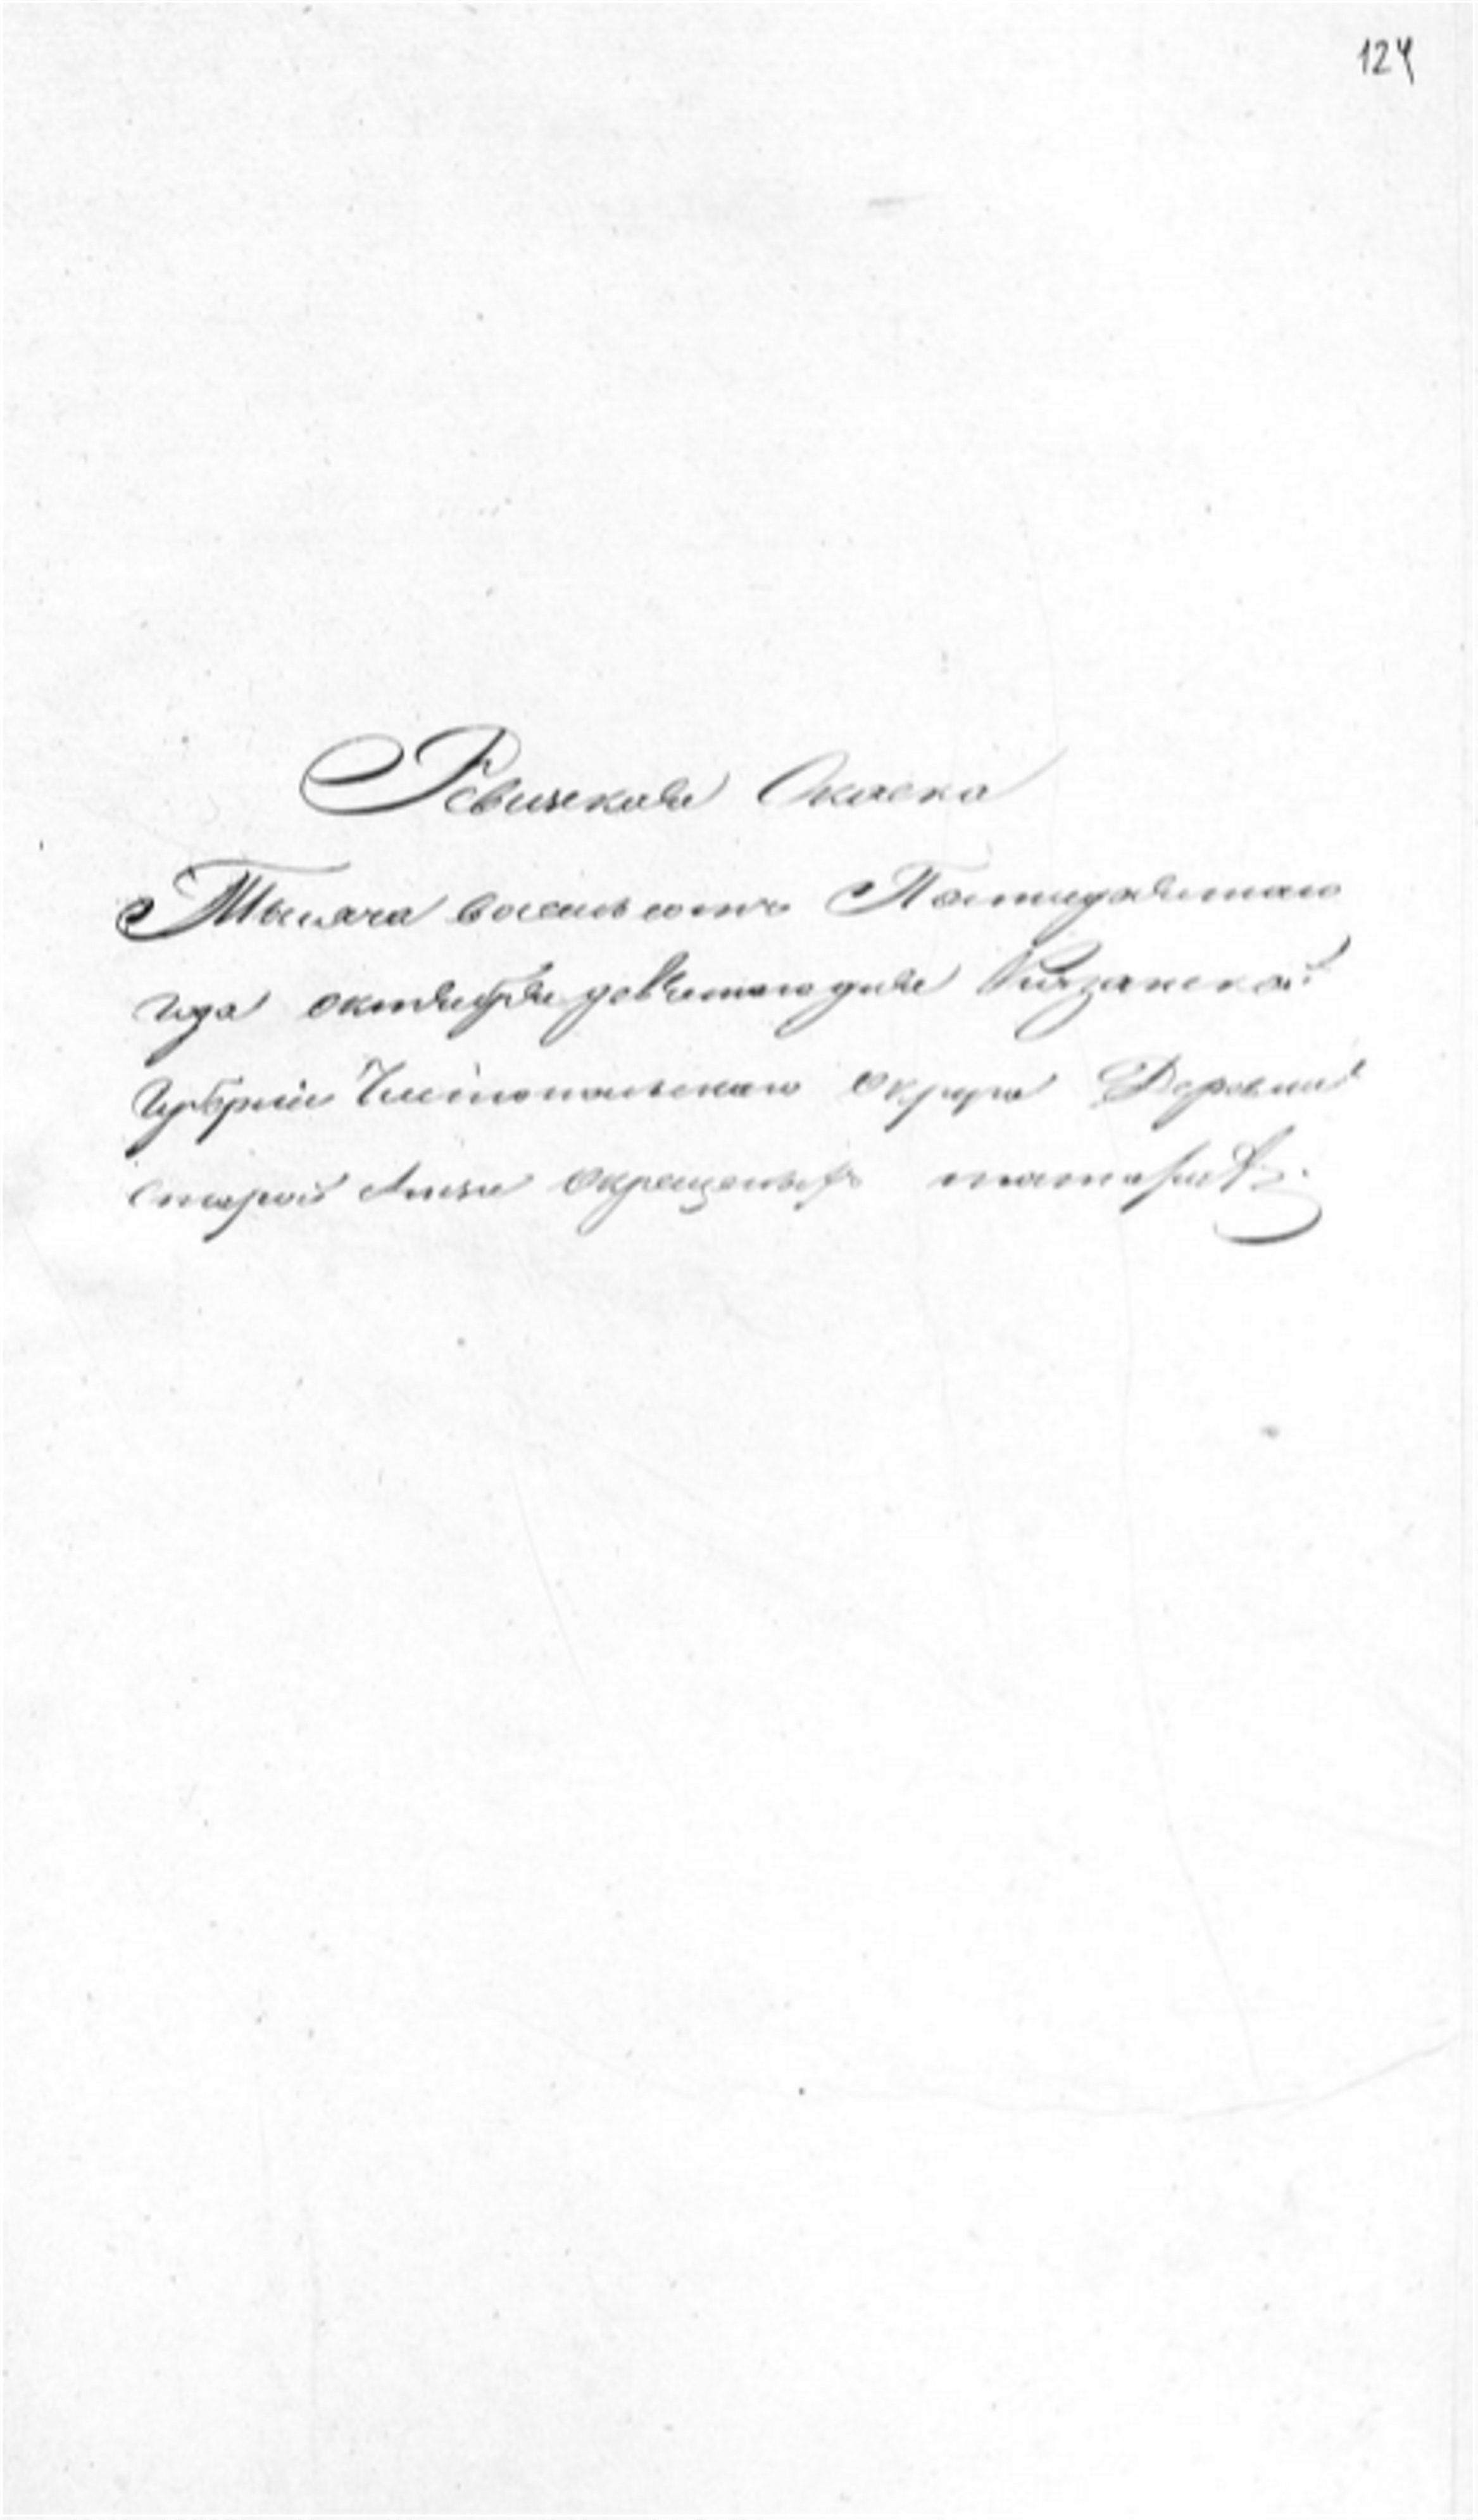 124
Ревизская Сказка
Тысяча восемь сотъ Пятидесятаго
года октября девятаго дня Казанской
Губернии Чистопольскаго округа Деревни
старой окрещеныхъ татаръ.